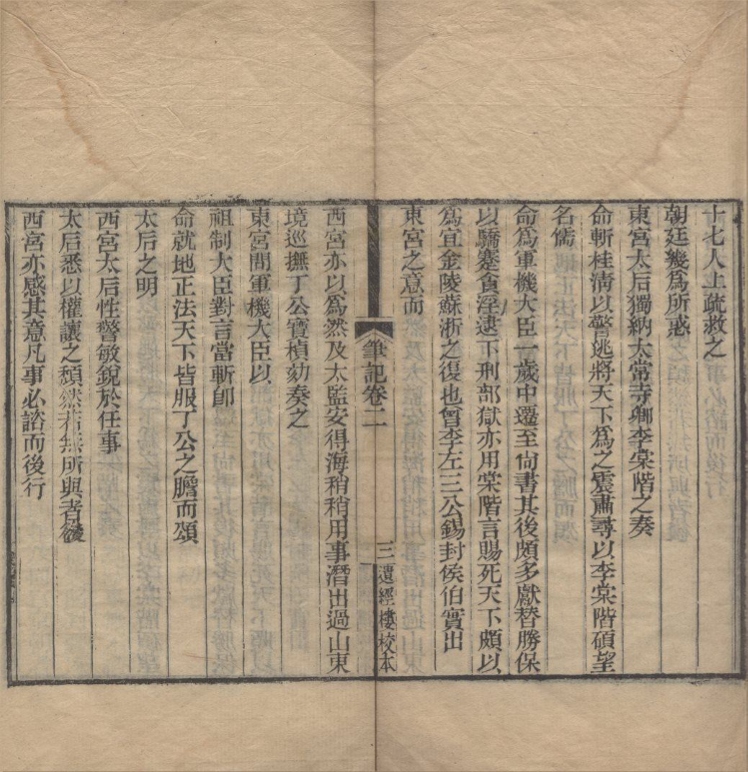 十七人上疏救之
朝廷幾爲所惑
東宮太后獨納太常寺卿李棠階之奏
命斬桂清以警逃將天下爲之震肅尋以李棠階碩望
名儒
命爲軍機大臣一歲中遷至尚書其後頗多獻替勝保
以驕蹇貪淫逮下刑部獄亦用棠階言賜死天下頗以
爲宜金陵蘇浙之復也曾李左三公錫封侯伯實出
東宮之意而
筆記卷二
三
遺經樓校本
西宮亦以爲然及太監安得海稍稍用事潛出過山東
境巡撫丁公寶楨劾奏之
東宮問軍機大臣以
祖制大臣對言當斬卽
命就地正法天下皆服丁公之膽而頌
太后之明
西宮太后性警敏銳於任事
太后悉以權讓之頹然若無所與者後
西宮亦感其意凡事必諮而後行